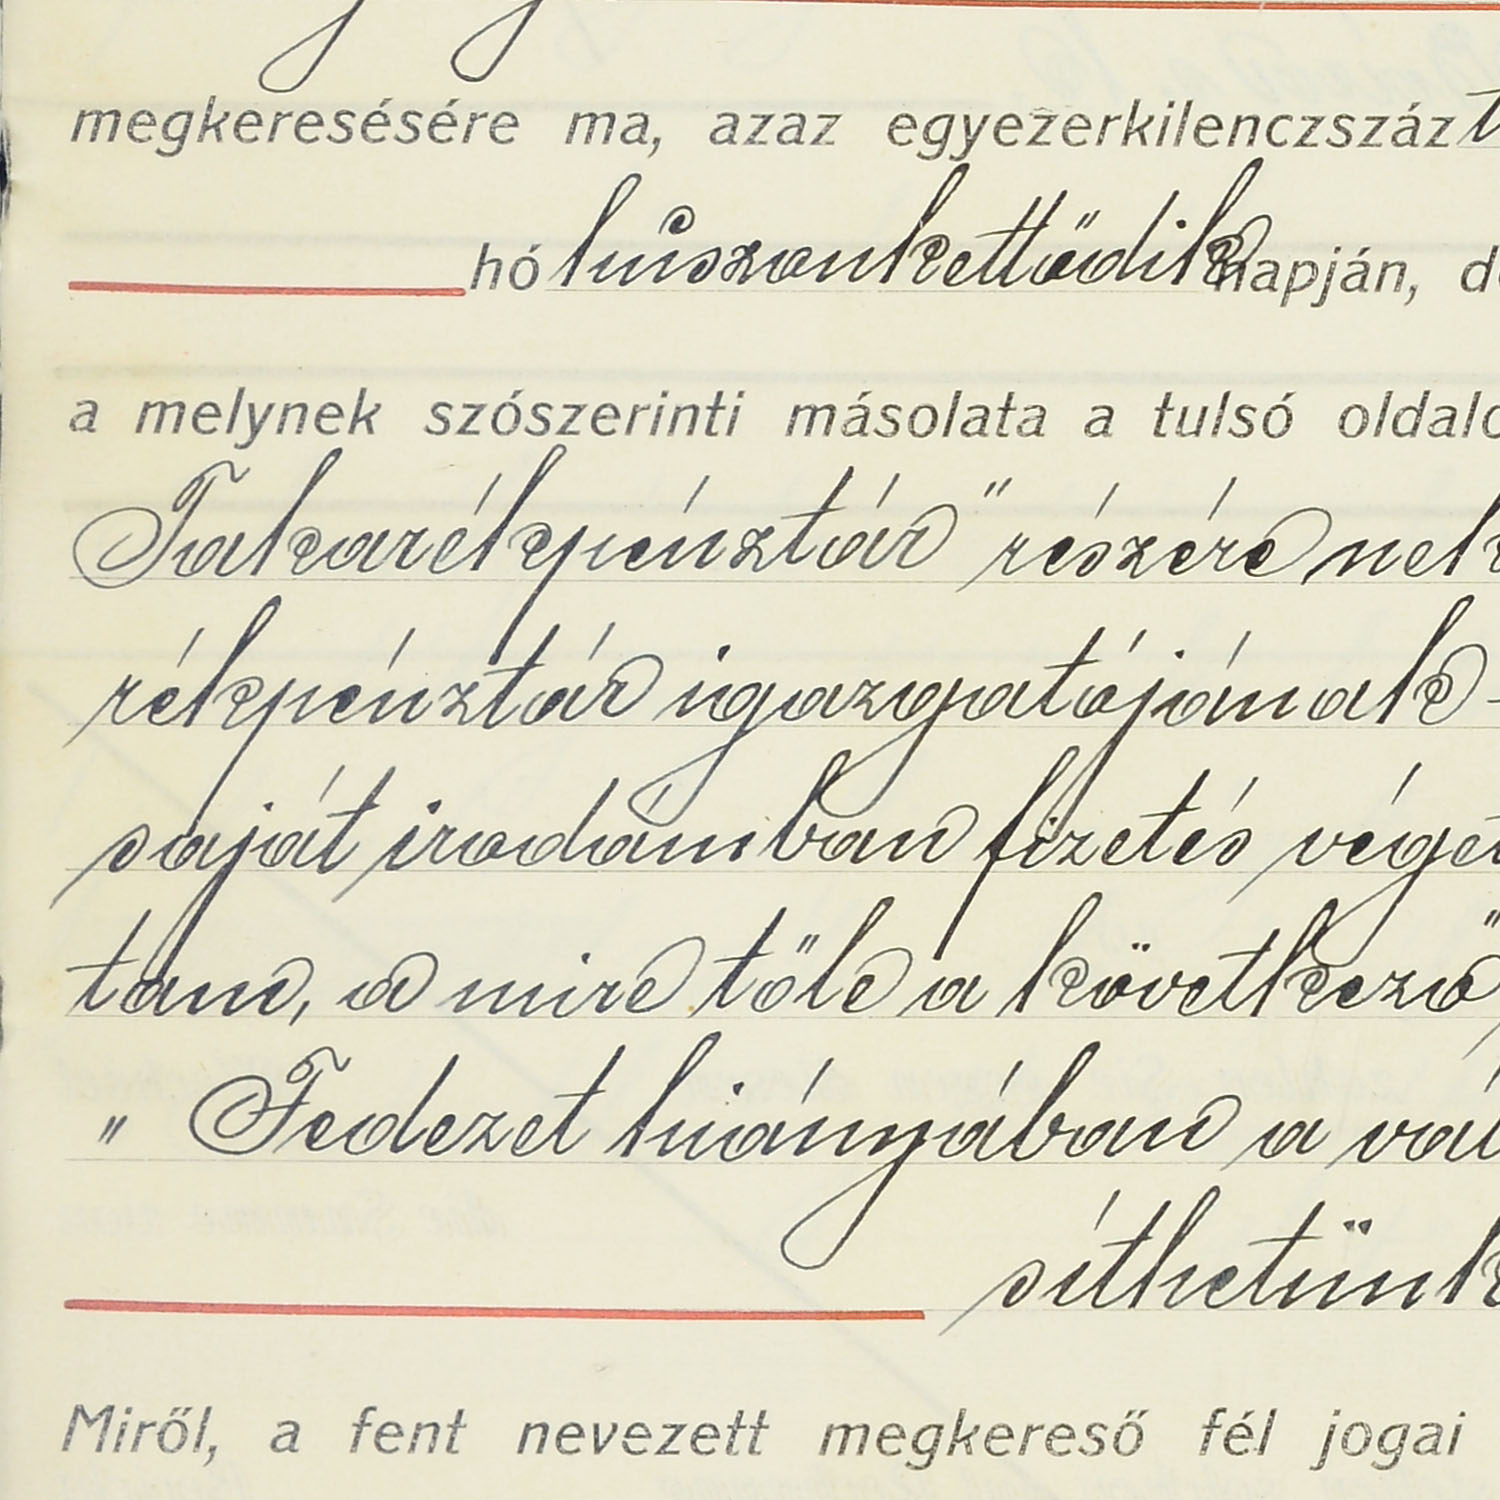 megkeresésére ma, azaz egyezerkilenczszáz
hó húszonkettödik napján,
a melynek szószerinti másolata a tulsó
Takarékpénztár" részére
rékpénztár igazgatójának -
saját irodámban fizetés
tam, a mire tőle a következő
" Fedezet hiányában a
síthetünk
Miről, a fent nevezett megkereső fél jogai